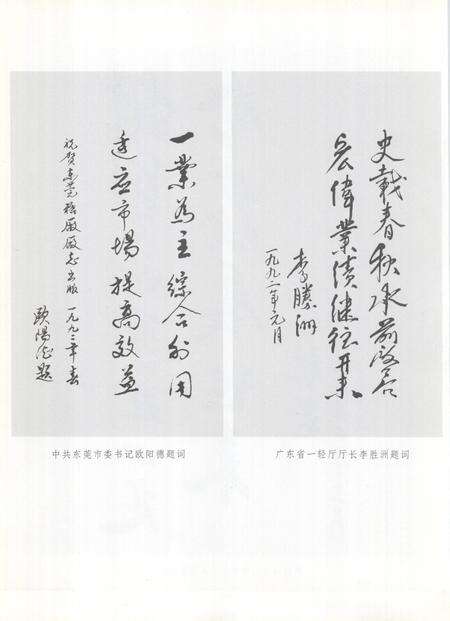 史載春秋承前啟后
宏偉業績继往开来
李勝洲
一九九二年元月
广东省一轻厅厅长李胜洲题词
一業為主 綜合利用
适应市場 提高效益
祝贺东莞糖厰厰志出版 一九九二年春
歐陽德題
中共东莞市委书记欧阳德题词